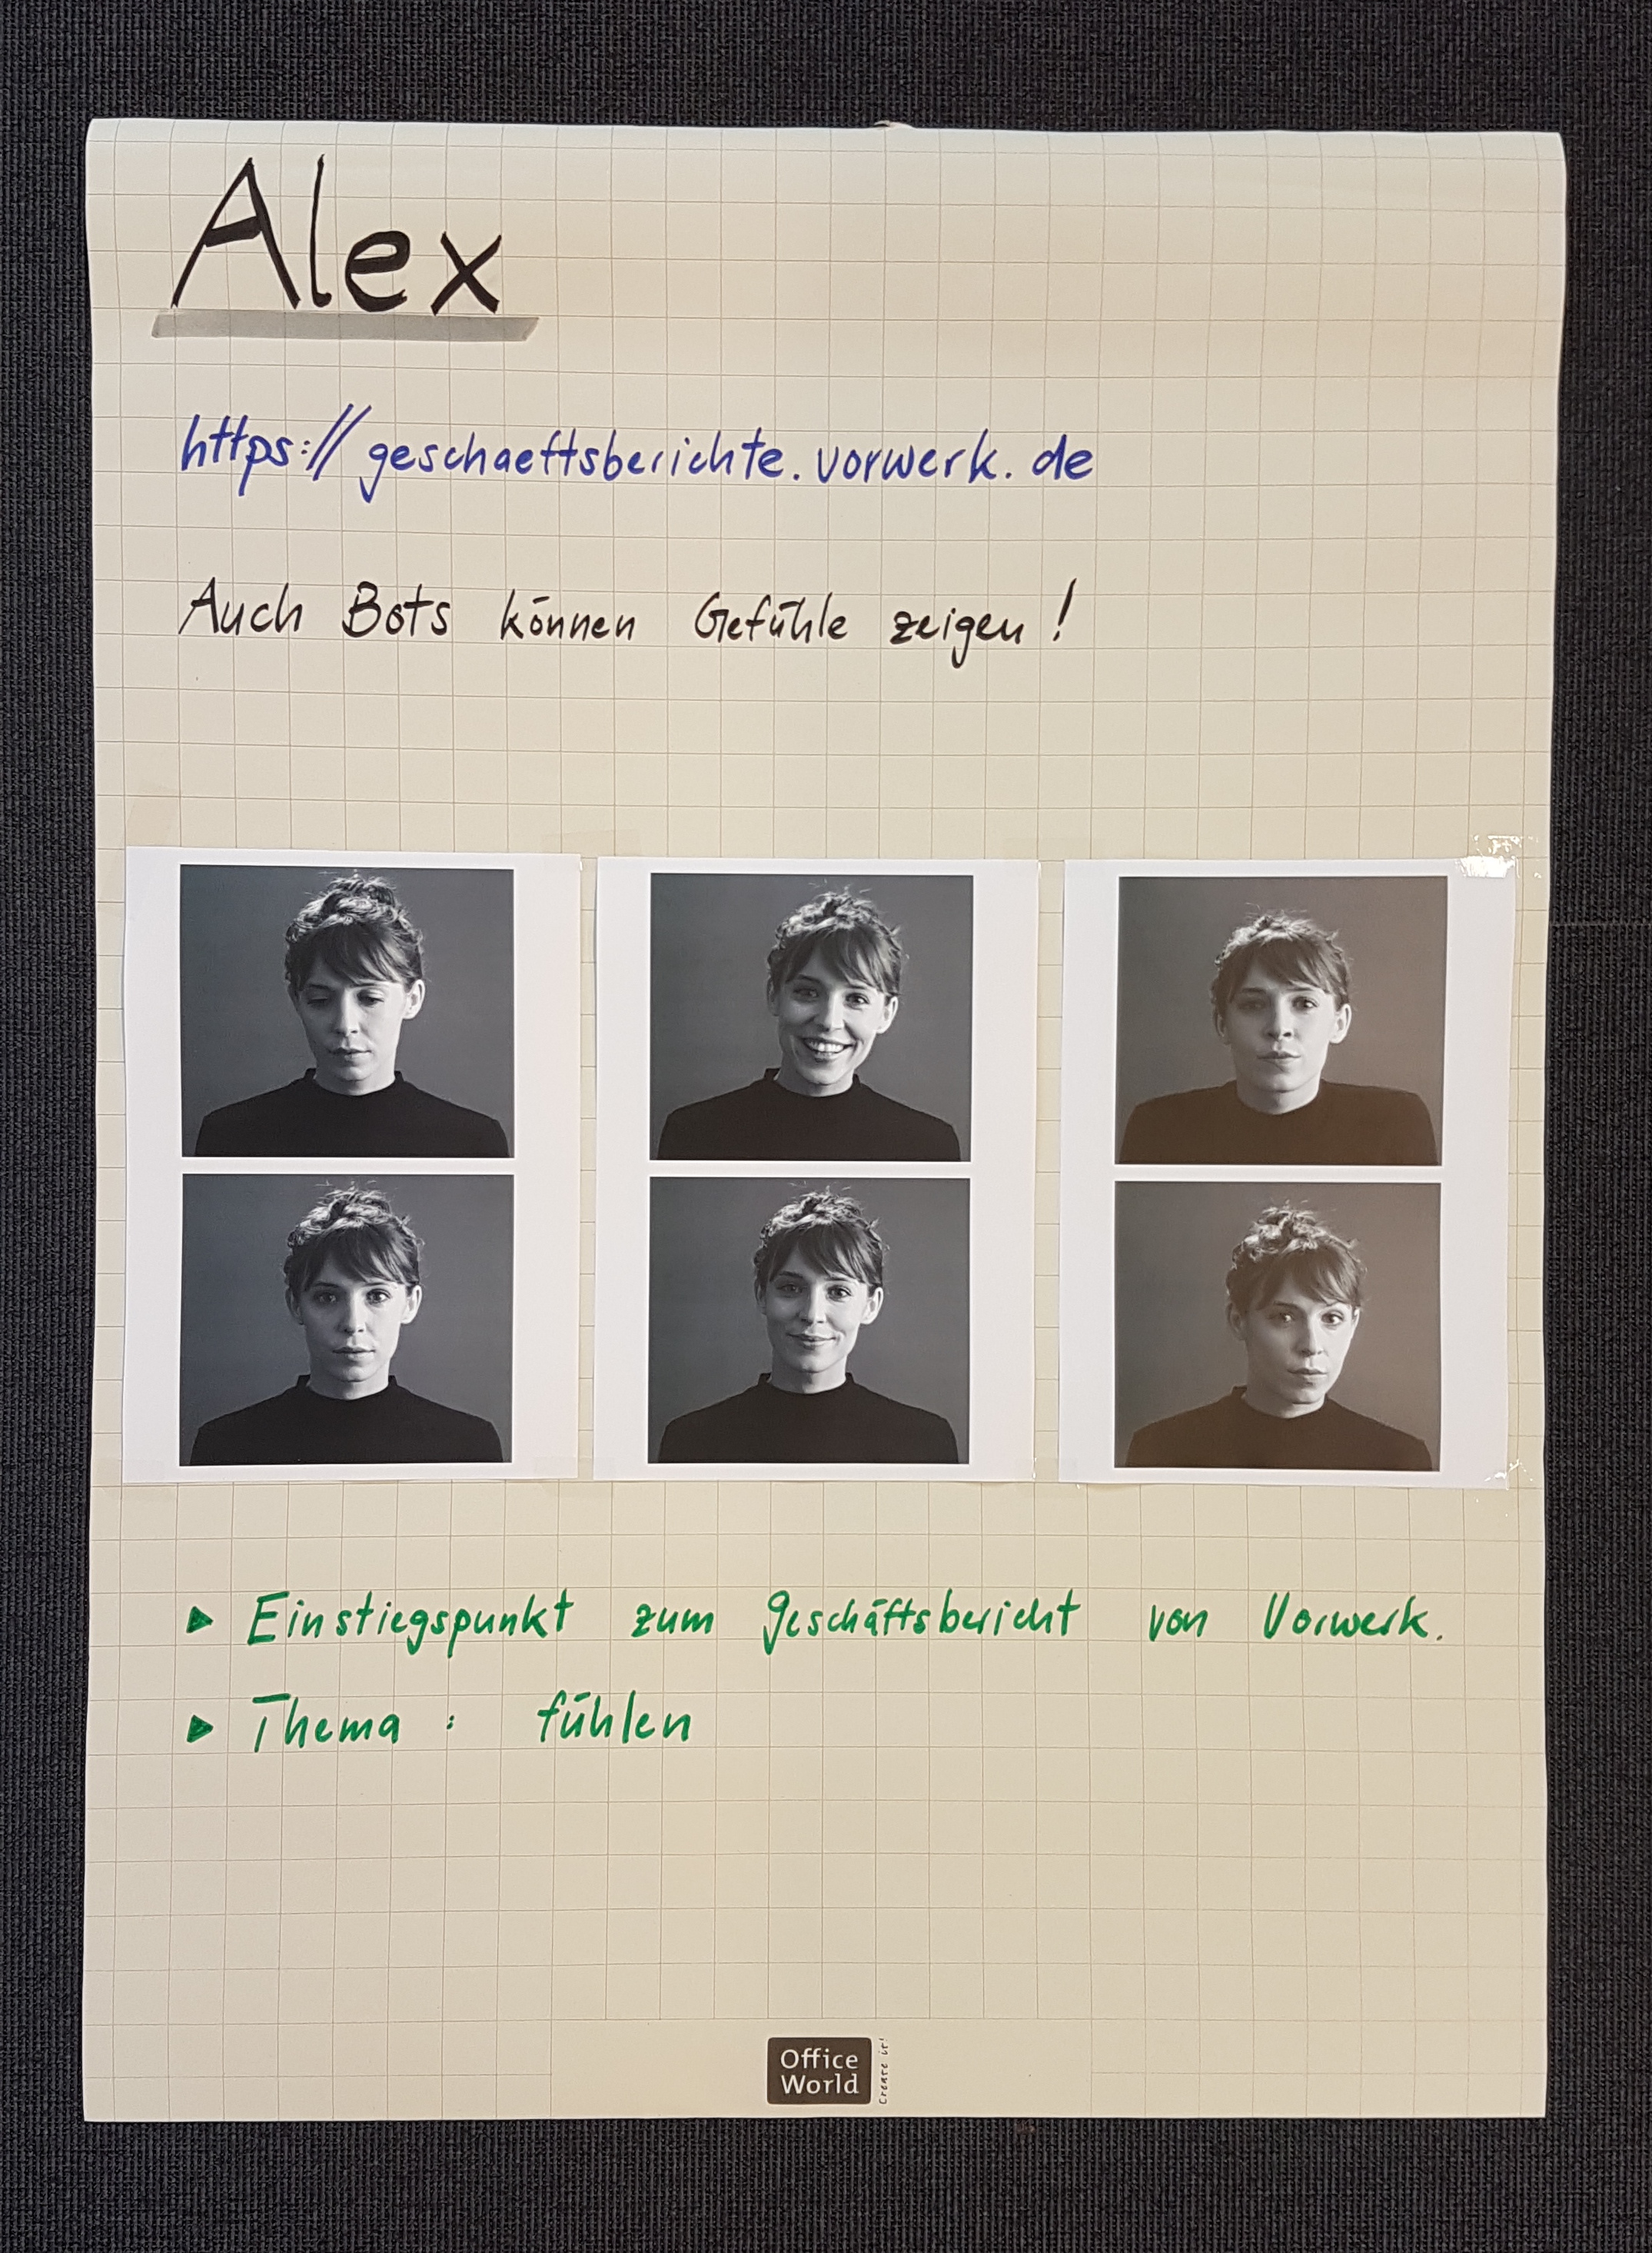 Alex
https://geschaeftsberichte.vorwerk.de
Auch Bots können Gefühle zeigen!
▶ Einstiegspunkt zum Geschäftsbericht von Vorwerk.
▶ Thema: fühlen
Office
World
Create it!